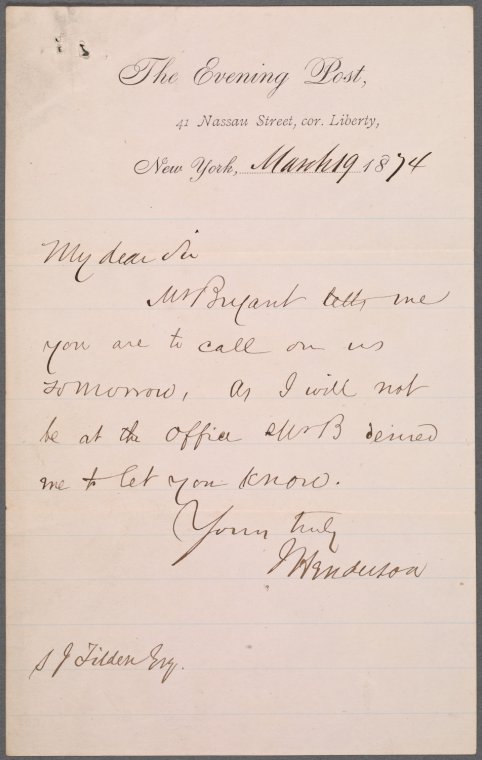 The Evening Post,
41 Nassau Street, cor. Liberty,
New York, March 19 1874
My dear Sir
Mr Bryant tells me
you are to call on us
tomorrow, As I will not
be at the office Mr B desired
me to let you know.
Yours truly
I Henderson
S J Tilden Esq.